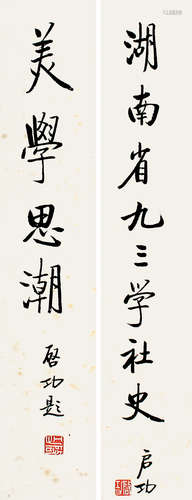 湖南省九三学社史
启功
美學思潮
啓功題